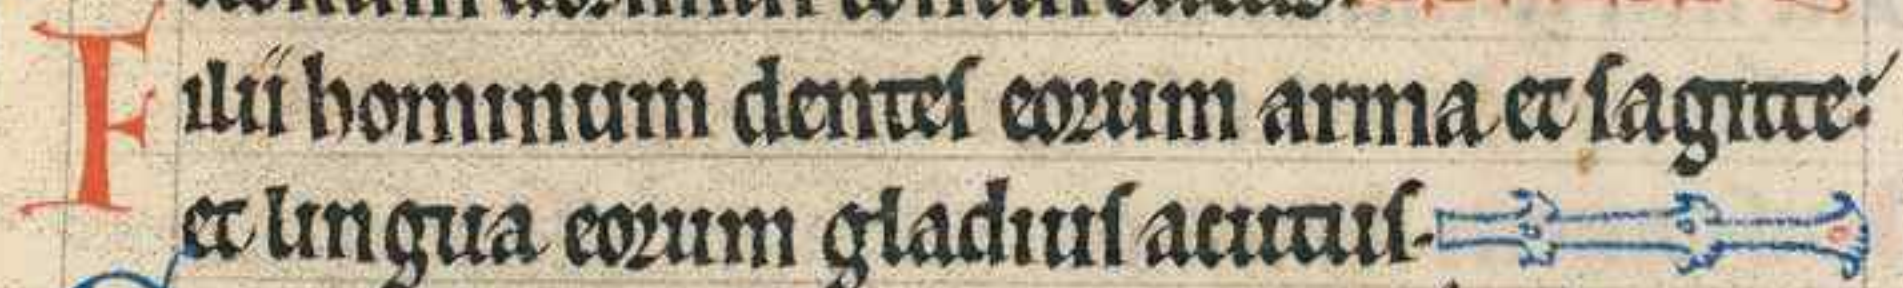 Filii hominum dentes eorum arma et sagitte:
et lingua eorum gladius acutus.